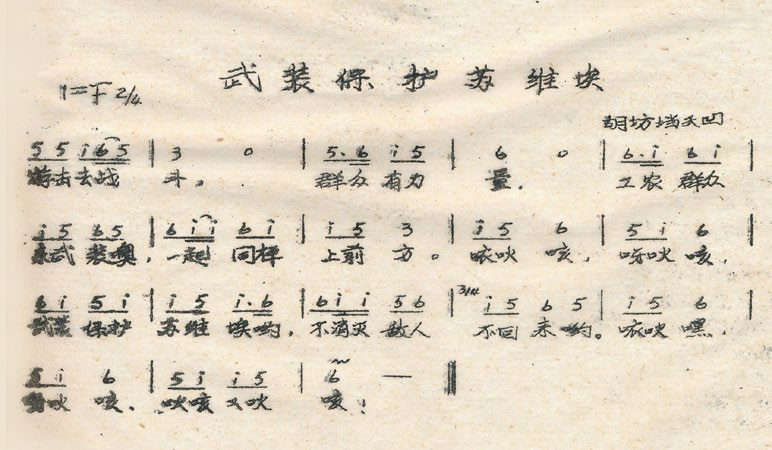 武装保护苏维埃
1=F 2/4
胡坊垱天凹
5 5 i 6 5 | 3 0 | 5. 6 i 5 | 6 0 | 6. i 6 i |
游击去战 斗。 群众有为 量。 工农群众
i 5 6 5 | 6 i i 6 i | i 5 3 | i 5 6 | 5 i 6 |
武装噢，一起同样 上前方。 咴吙咳， 呀吙咳，
6 i 5 i | i 5 i. 6 | 6 i i 5 6 | 3/4 i 5 6 5 | i 5 6 |
武装保护 苏维埃哟， 不消灭敌人 不回来哟。 咴吙嘿，
5 i 6 | 5 i i 5 | 6 — ‖
吙咳， 吙咳又吙 咳！